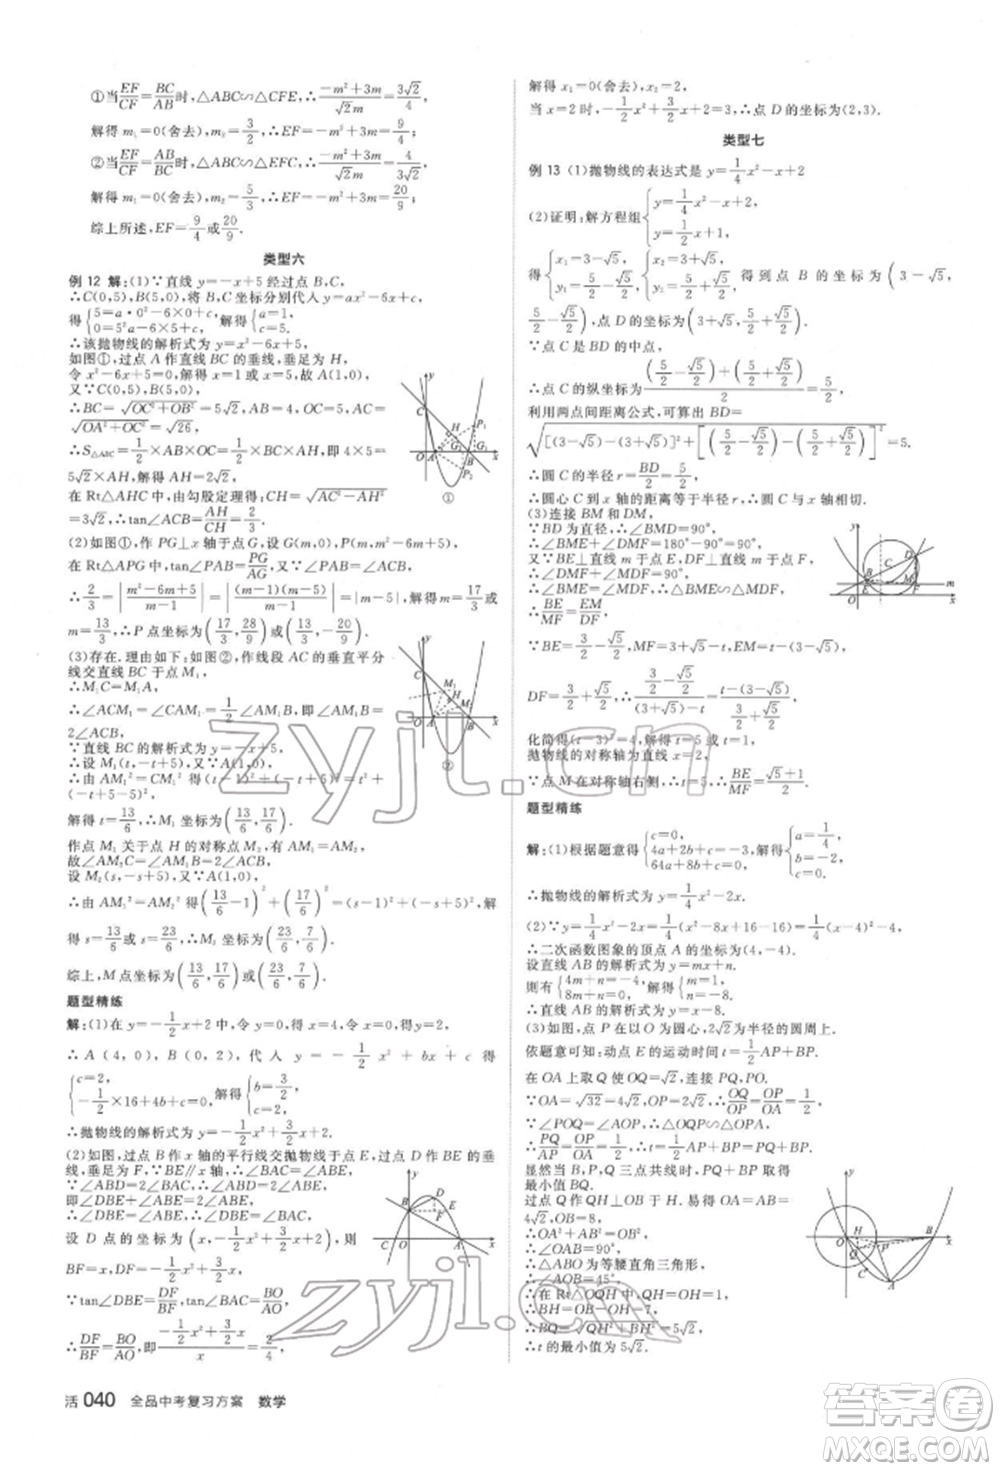 ①当EF/CF=BC/AB时,△ABC∽△CFE,∴(-m²+3m)/(√2m)=3√2/4,
解得m₁=0(舍去),m₂=3/2,∴EF=-m²+3m=9/4;
②当EF/CF=AB/BC时,△ABC∽△EFC,∴(-m²+3m)/(√2m)=2√2/3,
解得m₁=0(舍去),m₂=5/3,∴EF=-m²+3m=20/9.
综上所述,EF=9/4或20/9.
类型六
例12 解:(1)∵直线y=-x+5经过点B,C,
∴C(0,5),B(5,0),将B,C坐标分别代入y=ax²-6x+c,
得{5=a·0²-6×0+c, 0=5²a-6×5+c,解得{a=1, c=5.
∴该抛物线的解析式为y=x²-6x+5.
如图①,过点A作直线BC的垂线,垂足为H.
令x²-6x+5=0,解得x=1或x=5,∴A(1,0).
又∵C(0,5),B(5,0),
∴BC=√(OC²+OB²)=5√2,AB=4,AC=
√(OA²+OC²)=√26,
∴S△ABC=1/2×AB×OC=1/2×BC×AH,即4×5=
5√2×AH,解得AH=2√2.
在Rt△AHC中,由勾股定理得:CH=√(AC²-AH²)
=3√2,∴tan∠ACB=AH/CH=2/3.
(2)如图①,作PG⊥x轴于点G,设G(m,0),P(m,m²-6m+5),
在Rt△APG中,tan∠PAB=PG/AG,∵∠PAB=∠ACB,
∴2/3=|(m²-6m+5)/(m-1)|=|(m-1)(m-5)/(m-1)|=|m-5|,解得m=17/3或
m=13/3,∴P点坐标为(17/3,28/9)或(13/3,-20/9).
(3)存在.理由如下:如图②,作线段AC的垂直平分
线交直线BC于点M₁,
∴M₁C=M₁A,
∴∠ACM₁=∠CAM₁=1/2∠AM₁B,即∠AM₁B=
2∠ACB,
∵直线BC的解析式为y=-x+5;
∴设M₁(t,-t+5),
∴由AM₁²=CM₁²得(t-1)²+(-t+5)²=t²+
(-t+5-5)²,
解得t=13/6,∴M₁坐标为(13/6,17/6).
作点M₁关于点H的对称点M₂,
故∠AM₂C=∠AM₁B=2∠ACB,
设M₂(s,-s+5),
∴由AM₁=AM₂得(13/6-1)²+(17/6)²=(s-1)²+(-s+5)²,解
得s=13/6或s=23/6,∴M₂坐标为(23/6,7/6).
综上,M点坐标为(13/6,17/6)或(23/6,7/6).
题型精练
解:(1)在y=-1/2x+2中,令x=0,得y=2,令y=0,得x=4,
∴A(4,0),B(0,2),代入y=-1/2x²+bx+c得
{c=2, -1/2×16+4b+c=0,解得{b=3/2, c=2,
∴抛物线的解析式为y=-1/2x²+3/2x+2.
(2)如图,过点B作x轴的平行线交抛物线于点E,过点D作BE的垂
线,垂足为F,∵BE∥x轴,∴∠BAC=∠ABE,
∵∠ABD=2∠BAC,∴∠ABD=2∠ABE,
即∠DBE+∠ABE=2∠ABE,
∴∠DBE=∠ABE,∴∠DBE=∠BAC,
设D点的坐标为(x,-1/2x²+3/2x+2),则
BF=x,DF=-1/2x²+3/2x,
∵tan∠DBE=DF/BF,tan∠BAC=BO/AO,
∴DF/BF=BO/AO,即(-1/2x²+3/2x)/x=2/4,
解得x₁=0(舍去),x₂=2,
当x=2时,-1/2x²+3/2x+2=3,∴点D的坐标为(2,3).
类型七
例13 (1)抛物线的表达式是y=1/4x²-x+2
(2)证明:解方程组{y=1/4x²-x+2, y=1/2x+1,
得{x₁=3-√5, y₁=5/2-√5/2,{x₂=3+√5, y₂=5/2+√5/2,得到点B的坐标为(3-√5,
5/2-√5/2),点D的坐标为(3+√5,5/2+√5/2).
∵点C是BD的中点,
∴点C的纵坐标为((5/2-√5/2)+(5/2+√5/2))/2=5/2,
利用两点间距离公式,可算出BD=
√([(3-√5)-(3+√5)]²+[(5/2-√5/2)-(5/2+√5/2)]²)=5.
∴圆C的半径r=BD/2=5/2,
∴圆心C到x轴的距离等于半径r,∴圆C与x轴相切.
(3)连接BM和DM,
∵BD为直径,∴∠BMD=90°,
∴∠BME+∠DMF=180°-90°=90°.
∴∠BME=∠MDF,∴△BME∽△MDF,
∴BE/MF=EM/DF,
∵BE=√5/2,MF=(3+√5)-t,EM=t-(3-√5),
DF=√5/2,∴(√5/2)/((3+√5)-t)=(t-(3-√5))/(√5/2),
化简得(t-3)²=4,解得t=5或t=1,
抛物线的对称轴为直线x=2,
∵点M在对称轴右侧,∴t=5,∴BE/MF=(√5+1)/2.
题型精练
解:(1)根据题意得{c=0, 4a+2b+c=-3, 64a+8b+c=0,解得{a=1/4, b=-2, c=0,
∴抛物线的解析式为y=1/4x²-2x.
(2)∵y=1/4x²-2x=1/4(x²-8x+16-16)=1/4(x-4)²-4,
∴二次函数图象的顶点A的坐标为(4,-4).
设直线AB的解析式为y=mx+n,
则有{4m+n=-4, 8m+n=0,解得{m=1, n=-8,
∴直线AB的解析式为y=x-8.
(3)如图,点P在以O为圆心,2√2为半径的圆周上.
依题意可知:动点E的运动时间t=1/2AP+BP.
在OA上取Q使OQ=√2,连接PQ,PO,
∵OA=√32=4√2,OQ=√2,OP=2√2,∴OQ/OP=OP/OA=1/2.
∵∠POQ=∠AOP,∴△OQP∽△OPA,
∴PQ/PA=OP/OA=1/2,∴t=1/2AP+BP=PQ+BP.
显然当B,P,Q三点共线时,PQ+BP取得
最小值BQ.
过点Q作QH⊥OB于H.易得OA=AB=
4√2,OB=8,
∴OA²+AB²=OB²,
∴∠OAB=90°,
∴△ABO为等腰直角三角形,
∴∠AOB=45°,
∴在Rt△OQH中,QH=OH=1,
∴BH=OB-OH=8-1=7,
∴BQ=√(QH²+BH²)=5√2,
∴t的最小值为5√2.
活 040 全品中考复习方案 数学
zyjl.cn
zyjl.cn
答案圈
MXQE.COM